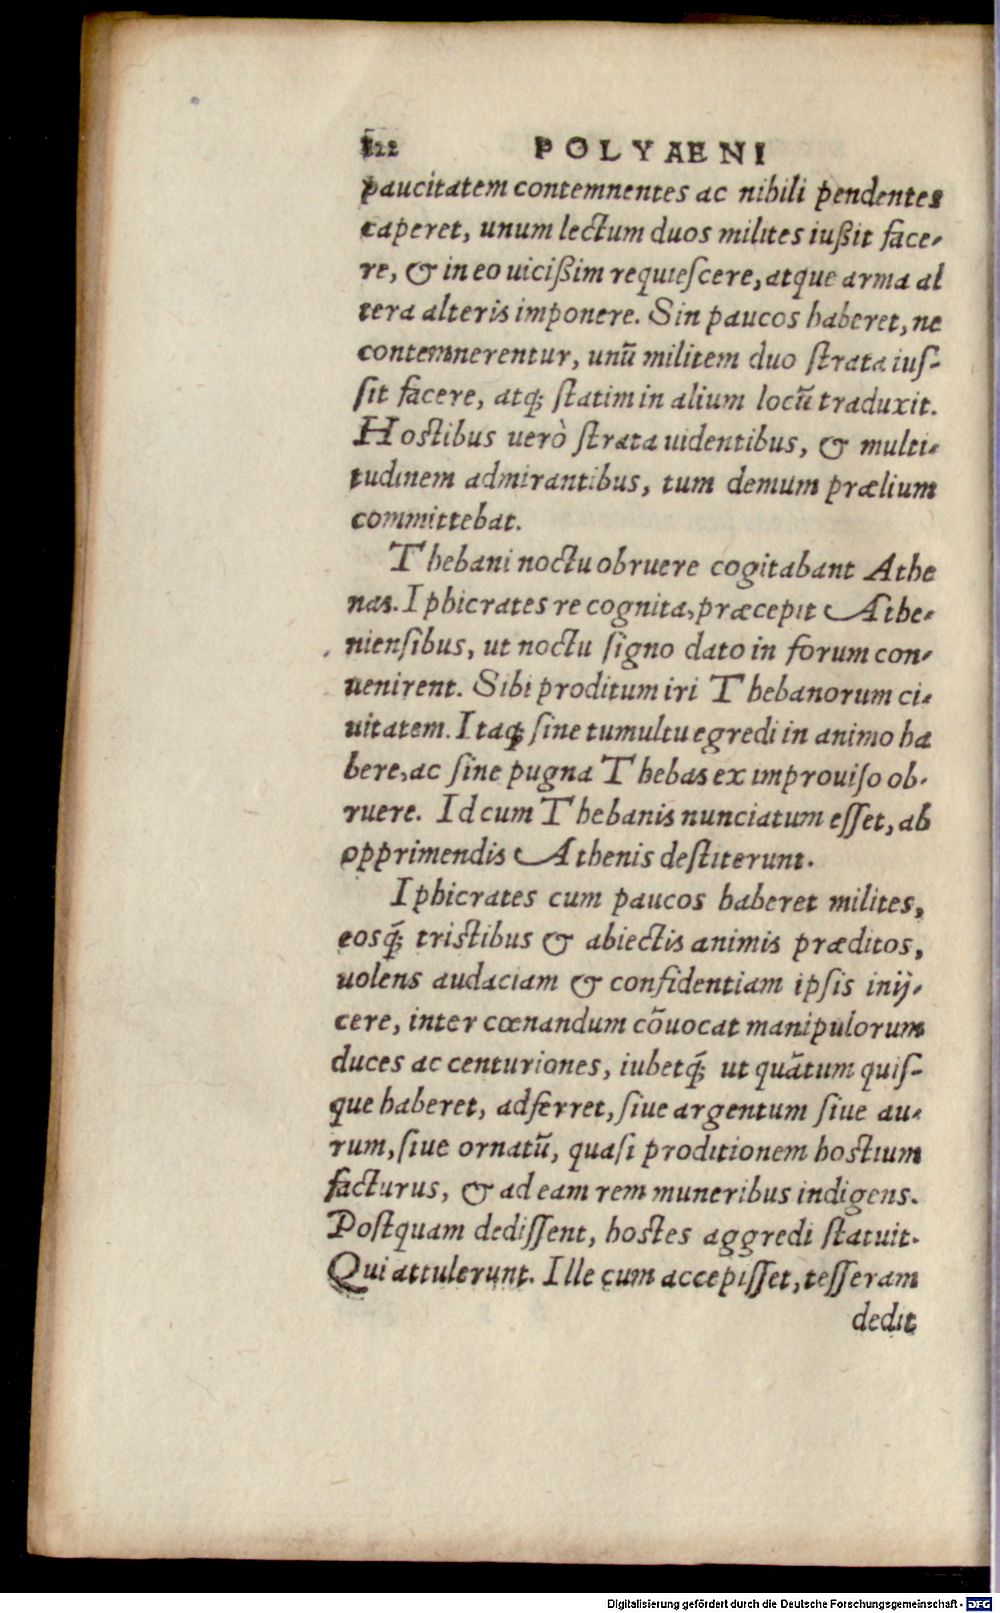 122 POLYAENI
paucitatem contemnentes ac nihili pendentes
caperet, unum lectum duos milites iußit face-
re, & in eo uicißim requiescere, atque arma al
tera alteris imponere. Sin paucos haberet, ne
contemnerentur, unū militem duo strata iuſ-
ſit facere, atq́; ſtatim in alium locū traduxit.
Hostibus uerò ſtrata uidentibus, & multi-
tudinem admirantibus, tum demum prælium
committebat.
Thebani noctu obruere cogitabant Athe
nas. Iphicrates re cognita, præcepit Athe-
nienſibus, ut noctu ſigno dato in forum con-
uenirent. Sibi proditum iri Thebanorum ci-
uitatem. Itaq; ſine tumultu egredi in animo ha
bere, ac ſine pugna Thebas ex improuiſo ob-
ruere. Id cum Thebanis nunciatum eſſet, ab
opprimendis Athenis deſtiterunt.
Iphicrates cum paucos haberet milites,
eosq́; tristibus & abiectis animis præditos,
uolens audaciam & confidentiam ipſis inij-
cere, inter cœnandum cōuocat manipulorum
duces ac centuriones, iubetq́; ut quātum quiſ-
que haberet, adferret, ſiue argentum ſiue au-
rum, ſiue ornatū, quaſi proditionem hostium
facturus, & ad eam rem muneribus indigens.
Poſtquam dediſſent, hostes aggredi ſtatuit.
Qui attulerunt. Ille cum accepiſſet, teſſeram
dedit
Digitalisierung gefördert durch die Deutsche Forschungsgemeinschaft - DFG